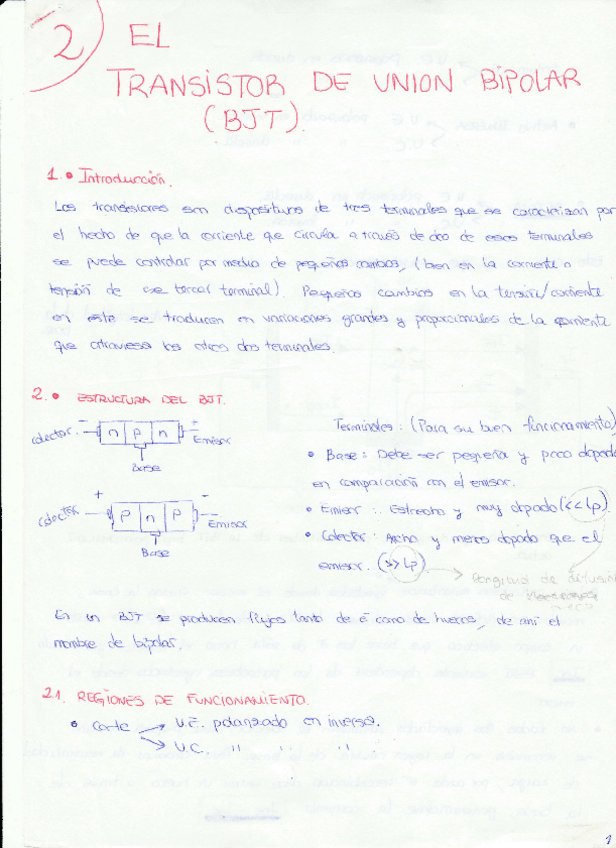 2) EL
TRANSISTOR DE UNION BIPOLAR
(BJT).
1. • Introducción.
Los transistores son dispositivos de tres terminales que se caracterizan por
el hecho de que la corriente que circula a través de dos de esos terminales
se puede controlar por medio de pequeños cambios, (bien en la corriente o
tensión de ese tercer terminal). Pequeños cambios en la tensión/corriente
en este se traducen en variaciones grandes y proporcionales de la corriente
que atraviesa los otros dos terminales.
2. • ESTRUCTURA DEL BJT.
colector. - n p n - Emisor
Base
Terminales: (Para su buen funcionamiento)
• Base: Debe ser pequeña y poco dopada
en comparación con el emisor.
• Emisor: Estrecho y muy dopado (<< Lp)
• Colector: Ancho y menos dopado que el
emisor. (>> Lp)
Longitud de difusión
de
colector + p n p - Emisor
Base
En un BJT se producen flujos tanto de e como de huecos, de ahí el
nombre de bipolar.
2.1. REGIONES DE FUNCIONAMIENTO.
• Corte → U.E. polarizado en inversa.
→ U.C. " " "
1